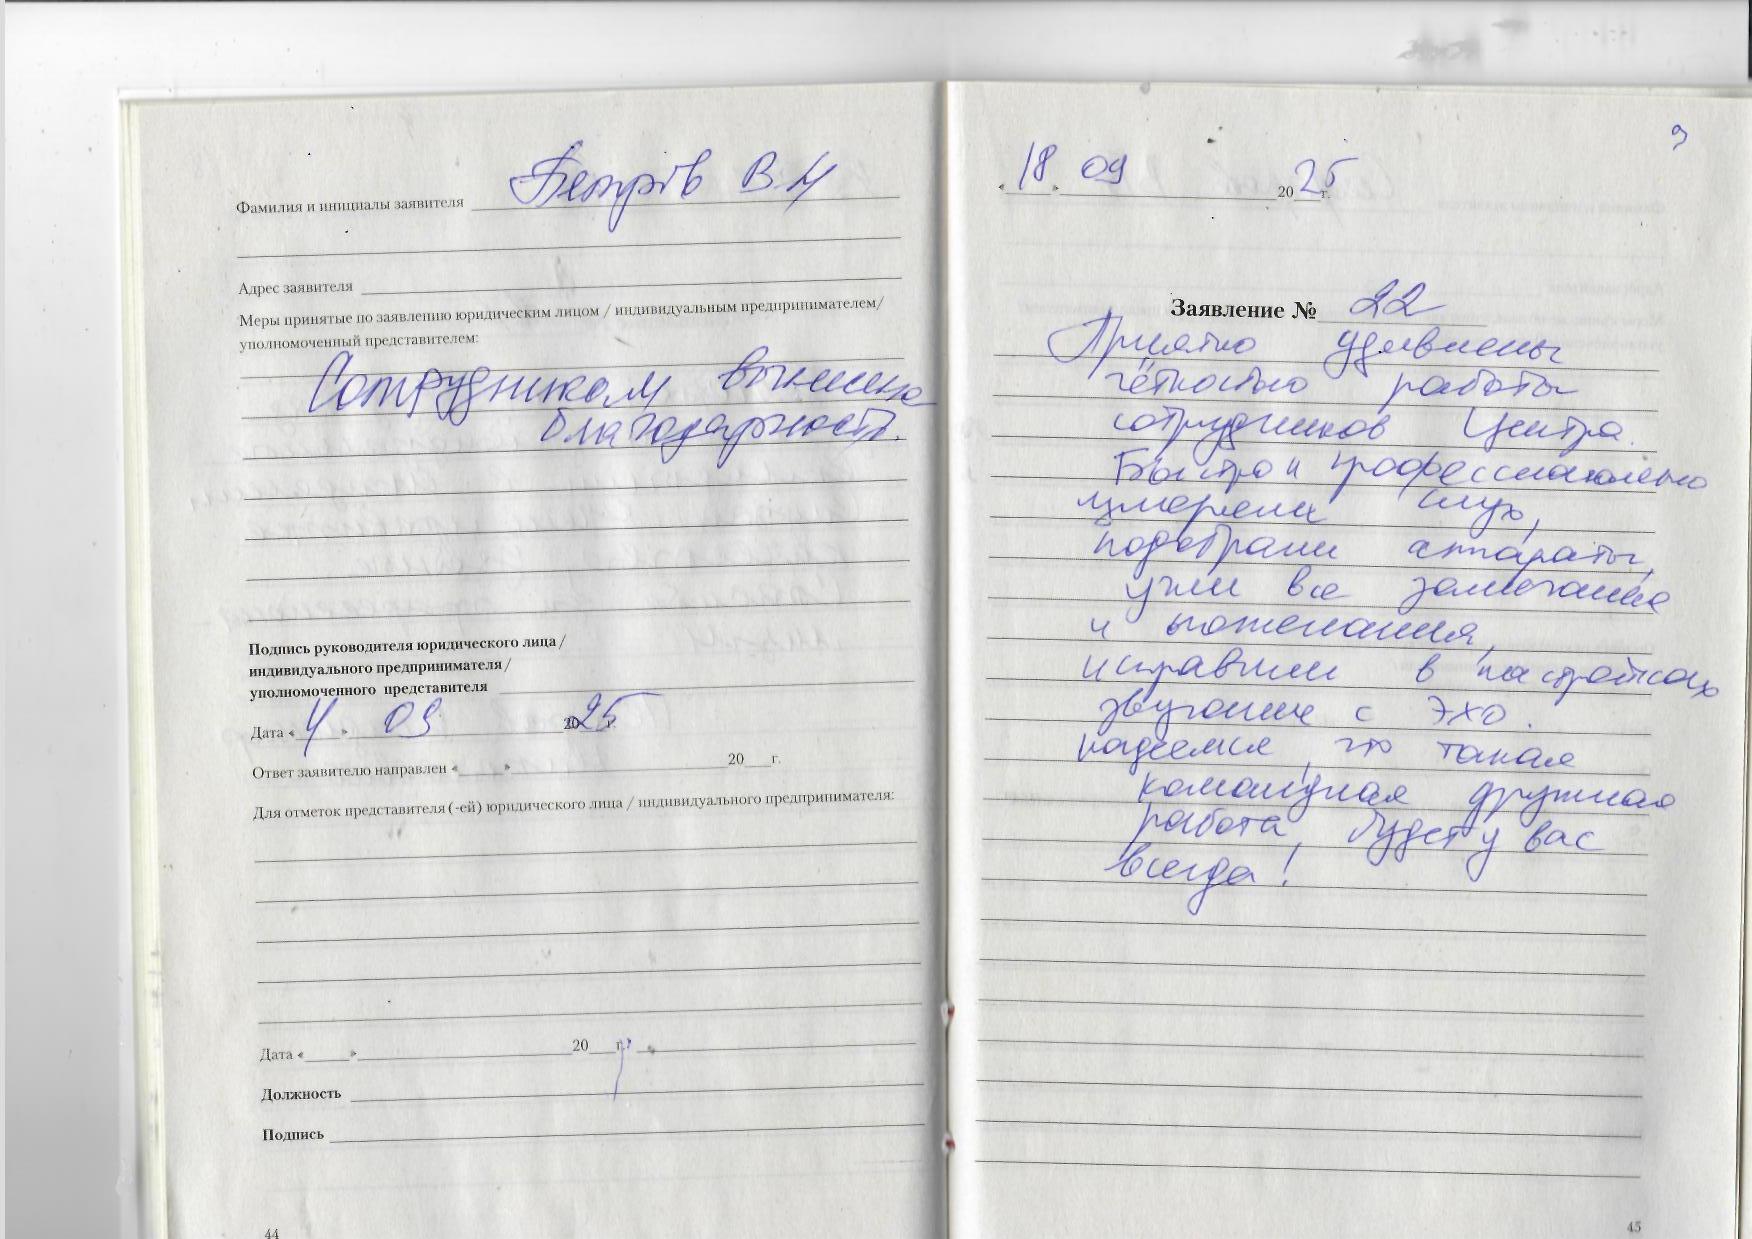 Фамилия и инициалы заявителя Петров В.И
Адрес заявителя
Меры принятые по заявлению юридическим лицом / индивидуальным предпринимателем/
уполномоченный представителем:
Сотрудникам вынесена
благодарность.
Подпись руководителя юридического лица /
индивидуального предпринимателя /
уполномоченного представителя
Дата « 4 » 09 2025 г.
Ответ заявителю направлен «____» 20___г.
Для отметок представителя (-ей) юридического лица / индивидуального предпринимателя:
Дата «_____» 20___г.
Должность
Подпись
44
9
« 18 » 09 2025 г.
Заявление № 22
Приятно удивлены
чёткостью работы
сотрудников Центра.
Быстро и профессионально
измерили слух,
подобрали аппараты,
учли все замечание
и пожелания,
исправили в настройках
звучание с эхо.
надеемся, что такая
командная дружная
работа, будет у вас
всегда!
45